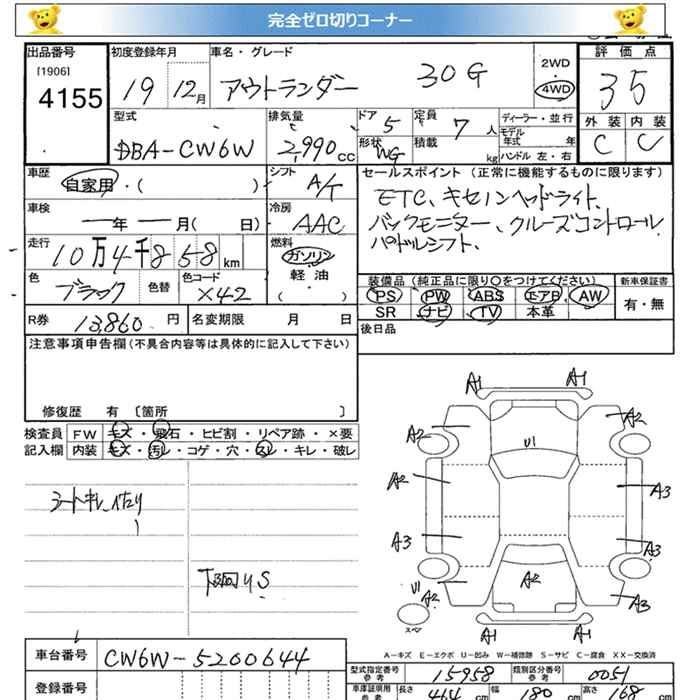 完全ゼロ切りコーナー
出品番号 初度登録年月 車名・グレード 評価点
[1906]
4155 19 12月 アウトランダー 30G 2WD 4WD 35
型式 排気量 ドア 5 定員 7人 ディーラー・並行 外装 内装
DBA-CW6W 2,990cc 形状 WG 積載 kg モデル年式 年 C C
ハンドル 左・右
車歴 自家用・( ) シフト A/T セールスポイント (正常に機能するものに限ります)
ETC、キセノンヘッドライト、
車検 年 月( 日) 冷房 AAC バックモニター、クルーズコントロール
パドルシフト、
走行 10万4千858km 燃料 ガソリン 軽油 ( )
色 ブラック 色替 色コード X42
装備品 (純正品に限り○をつけてください) 新車保証書
PS PW ABS エアB AW 有・無
SR ナビ TV 本革
R券 13,860円 名変期限 月 日 後日品
注意事項申告欄 (不具合内容等は具体的に記入して下さい)
修復歴 有 〔箇所 〕
検査員 FW キズ・飛石・ヒビ割・リペア跡・×要
記入欄 内装 キズ・汚レ・コゲ・穴・スレ・キレ・破レ
下回りS
A1 A1
A2 A2
U1
A2 A3
A3 A3
U1 A2 A2 A3
A1 A1
A－キズ E－エクボ U－凹み W－補修跡 S－サビ C－腐食 XX－交換済
車台番号 CW6W-5200644
登録番号
型式指定番号 参考 15958 類別区分番号 参考 0051
車庫証明用 参考 長さ 464cm 幅 180cm 高さ 168cm